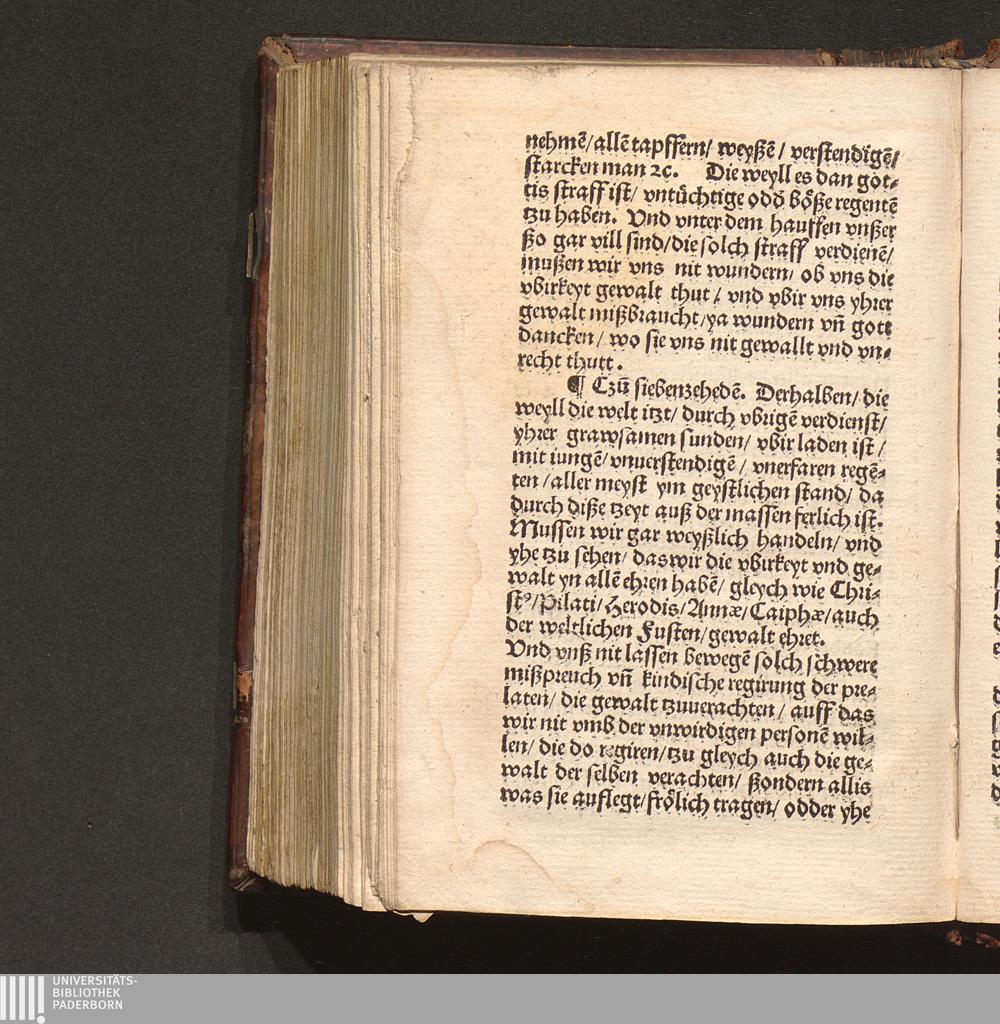 nehmē/allē tapffern/ weyßē/ verstendigē/
starcken man ꝛc. Die weyll es dan got⸗
tis straff ist/ vntüchtige odď bőße regentē
tzu haben. Vnd vnter dem hauffen vnßer
ßo gar vill sind/die solch straff verdienē/
mußen wir vns nit wundern/ ob vns die
vbirkeyt gewalt thut/ vnd vbir vns yhrer
gewalt mißbraucht/ya wundern vn̄ gott
dancken/ wo sie vns nit gewallt vnd vn⸗
recht thutt.
¶ Czū siebenzehedē. Derhalben/ die
weyll die welt itzt/ durch vbrigē verdienst/
yhrer grawsamen sunden/ vbir laden ist/
mit iungē/ vnuerstendigē/ vnerfaren regē⸗
ten/aller meyst ym geystlichen stand/ da
durch diße tzeyt auß der massen ferlich ist.
Mussen wir gar weyßlich handeln/ vnd
yhe tzu sehen/ das wir die vbirkeyt vnd ge⸗
walt yn allē ehren habē/ gleych wie Chri⸗
stꝰ/Pilati/Herodis/Annæ/Caiphæ/auch
der weltlichen Fusten/gewalt ehret.
Vnd vnß nit lassen bewegē solch schwere
mißpreuch vn̄ kindische regirung der pre⸗
laten/ die gewalt tzuuerachten/ auff das
wir nit vmb der vnwirdigen personē wil⸗
len/ die do regiren/tzu gleych auch die ge⸗
walt der selben verachten/ ßondern allis
was sie auflegt/frőlich tragen/ odder yhe
UNIVERSITÄTS-
BIBLIOTHEK
PADERBORN